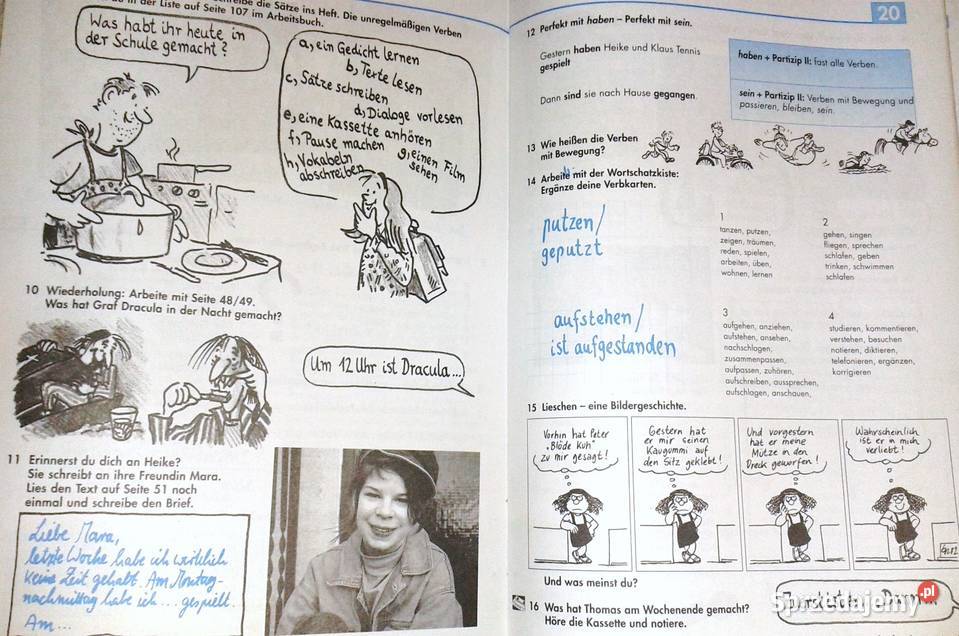 die Sätze ins Heft. Die unregelmäßigen Verben
der Liste auf Seite 107 im Arbeitsbuch.
Was habt ihr heute in
der Schule gemacht?
a, ein Gedicht lernen
b, Texte lesen
c, Sätze schreiben
d, Dialoge vorlesen
e, eine Kassette anhören
f, Pause machen
g, einen Film
sehen
h, Vokabeln
abschreiben
10 Wiederholung: Arbeite mit Seite 48/49.
Was hat Graf Dracula in der Nacht gemacht?
Um 12 Uhr ist Dracula...
11 Erinnerst du dich an Heike?
Sie schreibt an ihre Freundin Mara.
Lies den Text auf Seite 51 noch
einmal und schreibe den Brief.
Liebe Mara,
letzte Woche habe ich wirklich
keine Zeit gehabt. Am Montag-
nachmittag habe ich ... gespielt.
Am ...
20
12 Perfekt mit haben – Perfekt mit sein.
Gestern haben Heike und Klaus Tennis
gespielt
Dann sind sie nach Hause gegangen.
haben + Partizip II: fast alle Verben.
sein + Partizip II: Verben mit Bewegung und
passieren, bleiben, sein.
13 Wie heißen die Verben
mit Bewegung?
14 Arbeite mit der Wortschatzkiste:
Ergänze deine Verbkarten.
putzen/
geputzt
1
tanzen, putzen,
zeigen, träumen,
reden, spielen,
arbeiten, üben,
wohnen, lernen
2
gehen, singen
fliegen, sprechen
schlafen, geben
trinken, schwimmen
schlafen
aufstehen/
ist aufgestanden
3
aufgehen, anziehen,
aufstehen, ansehen,
nachschlagen,
zusammenpassen,
aufpassen, zuhören,
aufschreiben, aussprechen,
aufschlagen, anschauen,
4
studieren, kommentieren,
verstehen, besuchen
notieren, diktieren,
telefonieren, ergänzen,
korrigieren
15 Lieschen – eine Bildergeschichte.
Vorhin hat Peter
"Blöde Kuh"
zu mir gesagt!
Gestern hat
er mir seinen
Kaugummi auf
den Sitz geklebt!
Und vorgestern
hat er meine
Mütze in den
Dreck geworfen!
Wahrscheinlich
ist er in mich
verliebt!
Und was meinst du?
16 Was hat Thomas am Wochenende gemacht?
Höre die Kassette und notiere.
Sprzedajemy.pl